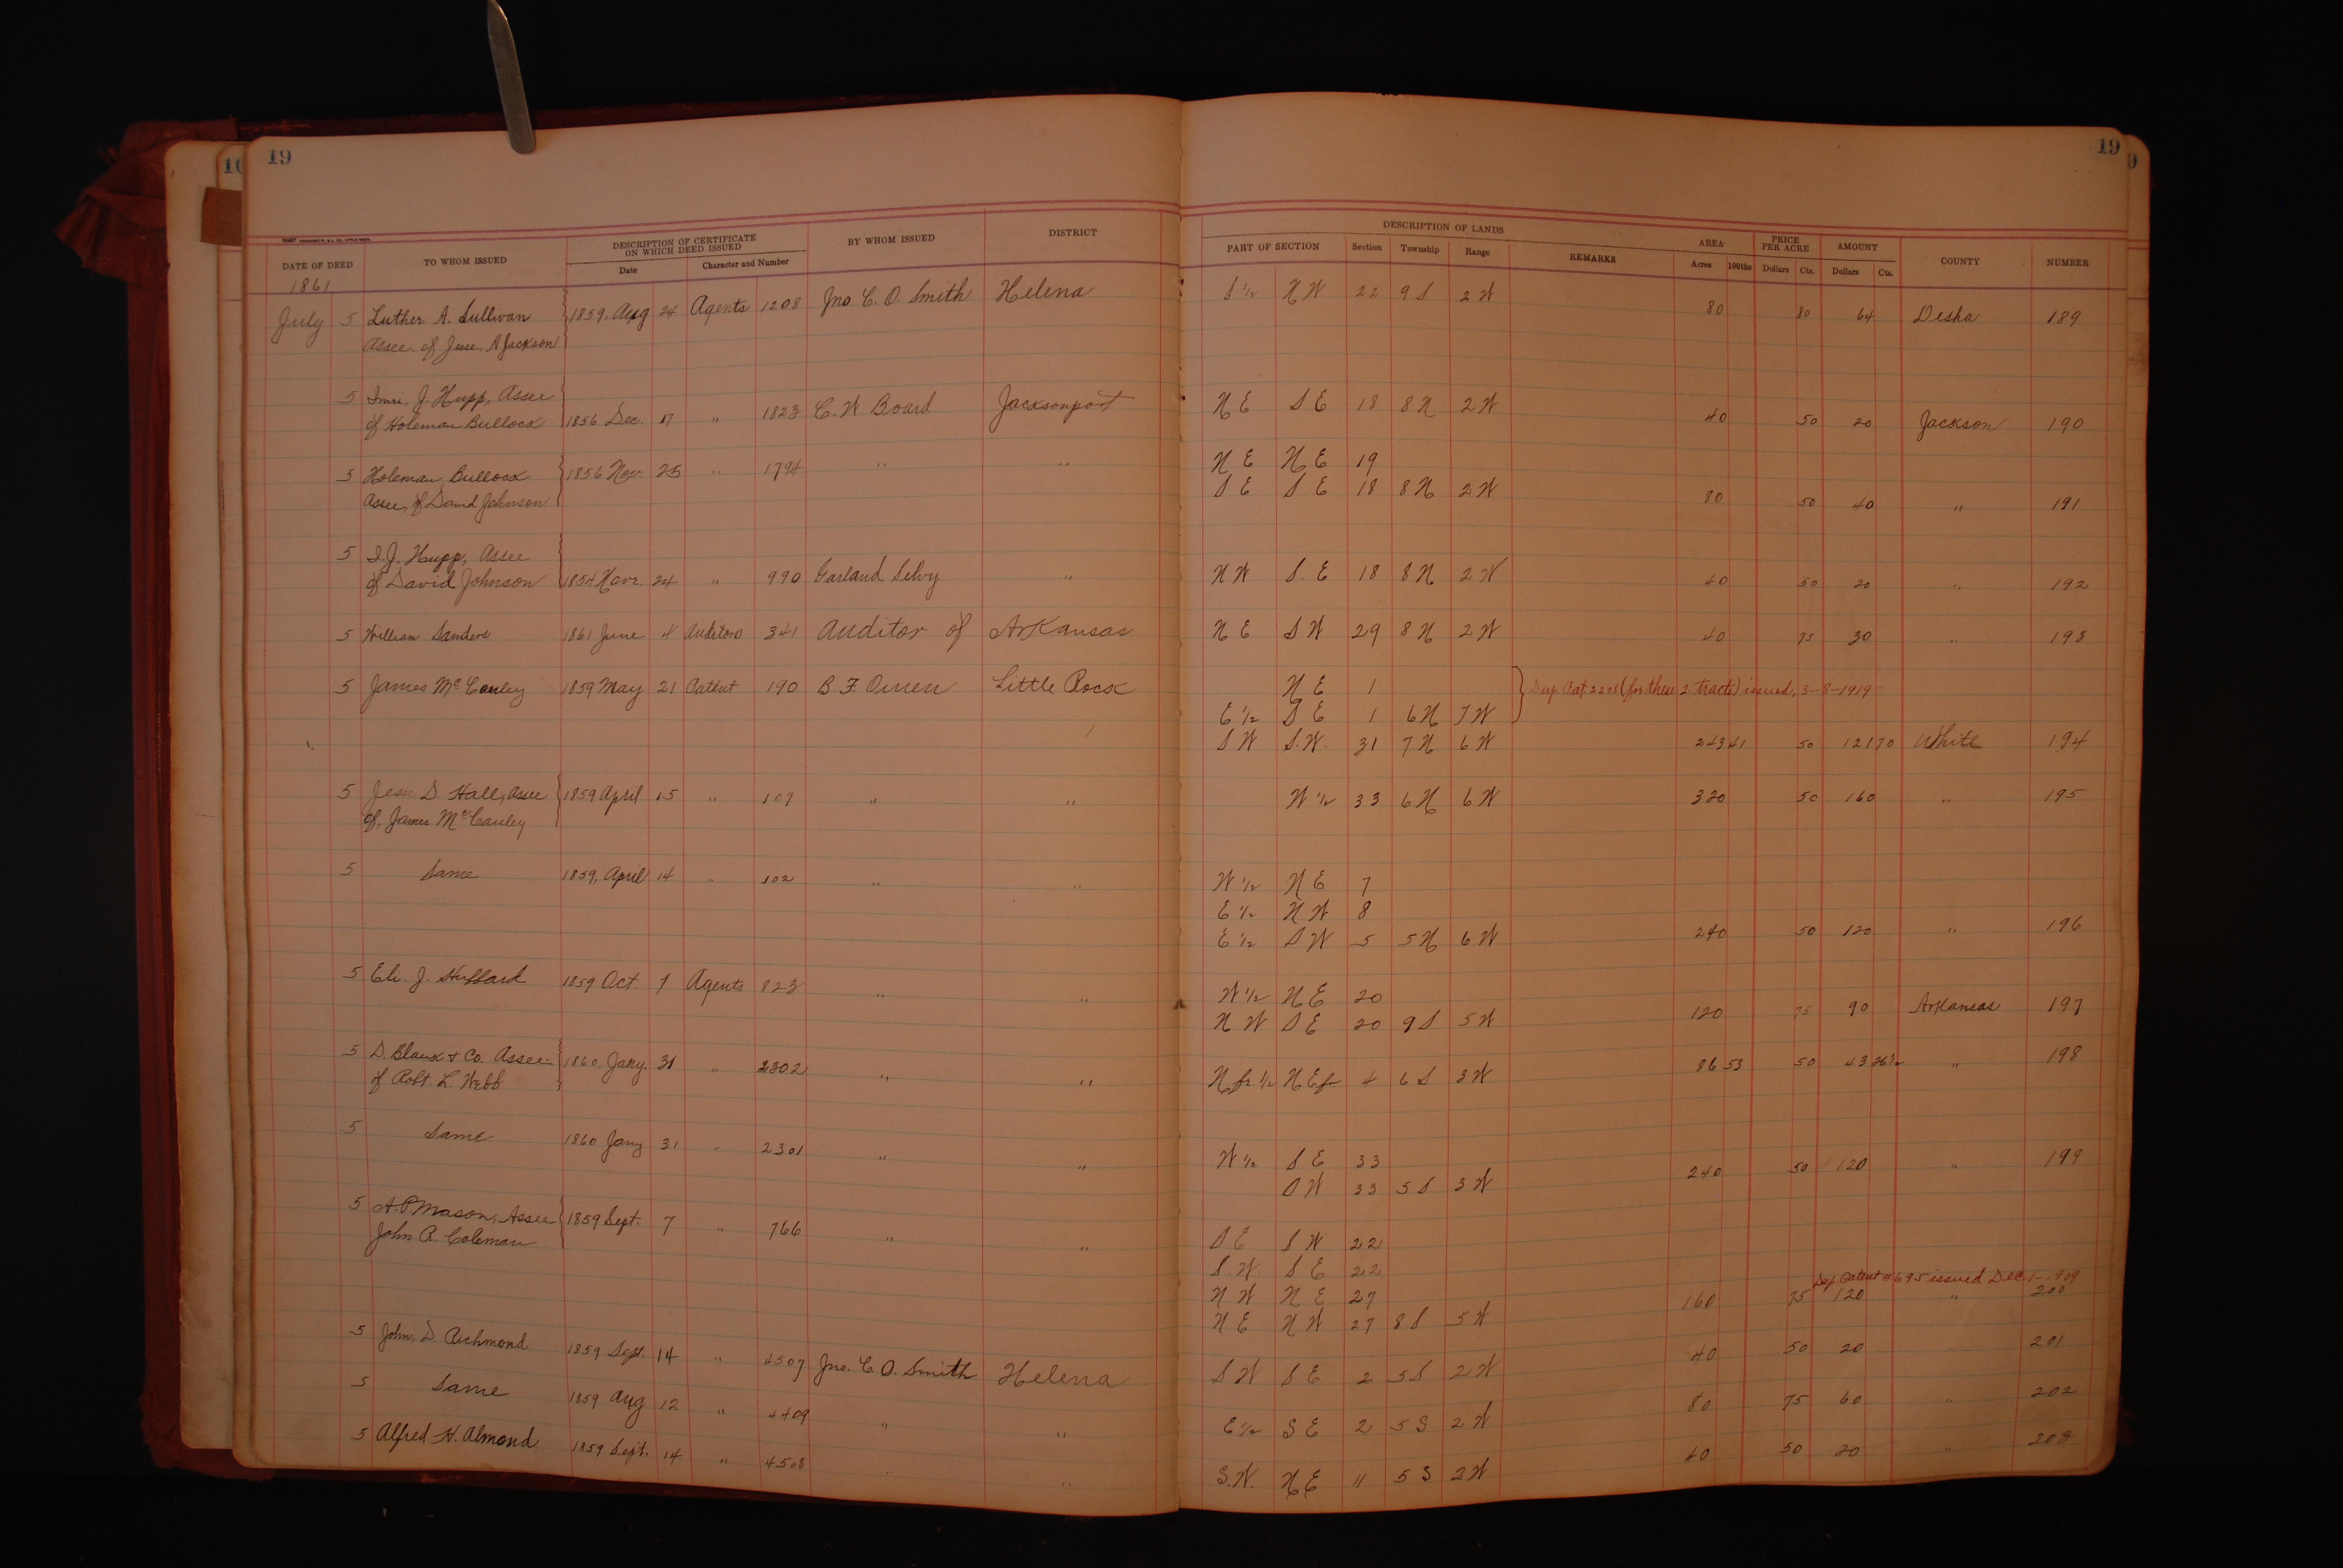 19
19
DATE OF DEED TO WHOM ISSUED DESCRIPTION OF CERTIFICATE ON WHICH DEED ISSUED Date Character and Number BY WHOM ISSUED DISTRICT DESCRIPTION OF LANDS PART OF SECTION Section Township Range REMARKS AREA Acres 100ths PRICE PER ACRE Dollars Cts. AMOUNT Dollars Cts. COUNTY NUMBER
1861
July 5 Luther A. Sullivan 1859. Aug 24 Agents 1208 Jno. C. O. Smith Helena S ½ N W 22 9 S 2 W 80 80 64 Desha 189
Assee. of Jesse A Jackson
5 Imri. J. Hupp, Assee
of Holeman Bullock 1856 Dec. 17 " 1823 C. W Board Jacksonport N E S E 18 8 N 2 W 40 50 20 Jackson 190
5 Holeman Bullock 1856 Nov. 25 " 1794 " " N E N E 19
Assee, of David Johnson S E S E 18 8 N 2 W 80 50 40 " 191
5 I. J. Hupp, Assee
of David Johnson 1854 Novr. 24 " 990 Garland Selvy " N W S. E 18 8 N 2 W 40 50 20 " 192
5 William Sanders 1861 June 4 Auditors 341 Auditor of Arkansas N E S W 29 8 N 2 W 40 75 30 " 193
5 James McCauley 1859 May 21 Patent 190 B. F. Owen Little Rock N E 1 Dup. Pat. 2208 (for these 2 tracts) issued, 3-8-1919
E ½ S E 1 6 N 7 W
S W S. W. 31 7 N 6 W 243 41 50 121 70 White 194
5 Jesse D. Hall, Assee 1859 April 15 " 107 " " W ½ 33 6 N 6 W 320 50 160 " 195
of, James McCauley
5 Same 1859, April 14 " 102 " " W ½ N E 7
E ½ N W 8
E ½ S W 5 5 N 6 W 240 50 120 " 196
5 Eli. J. Hubbard 1859 Oct 7 Agents 823 " " W ½ N E 20
N W S E 20 9 S 5 W 120 75 90 Arkansas 197
5 D. Blanx & Co. Assee 1860. Jany. 31 " 2302 " " N fr ½ N E fr 4 6 S 3 W 86 53 50 43 26½ " 198
of Robt L. Webb
5 Same 1860 Jany 31 " 2301 " " W ½ S E 33
S W 33 5 S 3 W 240 50 120 " 199
5 A. P. Mason, Assee 1859 Sept. 7 " 766 " " S E S W 22
John R. Coleman S. W. S E 22
N W N E 27 Dup. Patent # 695 issued Dec. 1-1909
N E N W 27 8 S 5 W 160 75 120 " 200
5 John, D. Richmond 1859 Sept. 14 " 4507 Jno. C. O. Smith Helena S W S E 2 5 S 2 W 40 50 20 " 201
5 Same 1859 Aug 12 " 4409 " " E ½ S E 2 5 S 2 W 80 75 60 " 202
5 Alfred H. Almond 1859 Sept. 14 " 4508 " " S. W. N E 11 5 S 2 W 40 50 20 " 203